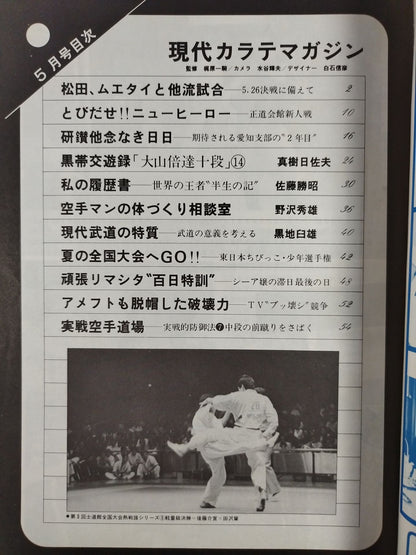 5月号目次
現代カラテマガジン
監修 梶原一騎/カメラ 水谷輝夫/デザイナー 白石信摩
松田、ムエタイと他流試合──5.26決戦に備えて 2
とびだせ!!ニューヒーロー──正道会館新人戦 10
研鑽他念なき日日──期待される愛知支部の"2年目" 16
黒帯交遊録「大山倍達十段」⑭ 真樹日佐夫 24
私の履歴書──世界の王者"半生の記" 佐藤勝昭 30
空手マンの体づくり相談室 野沢秀雄 36
現代武道の特質──武道の意義を考える 黒地臼雄 40
夏の全国大会へGO!!──東日本ちびっこ・少年選手権 42
頑張リマシタ"百日特訓"──シーア嬢の滞日最後の日 48
アメフトも脱帽した破壊力──TV"ブッ壊シ"競争 52
実戦空手道場──実戦的防御法❼中段の前蹴りをさばく 54
●第3回士道館全国大会熱戦譜シリーズ①軽量級決勝・後藤介宣・田沢肇